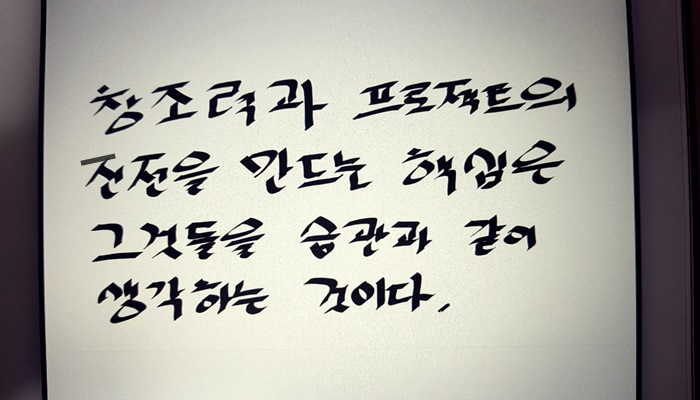 창조력과 프로젝트의
진전을 만드는 핵심은
그것들을 습관과 같이
생각하는 것이다.